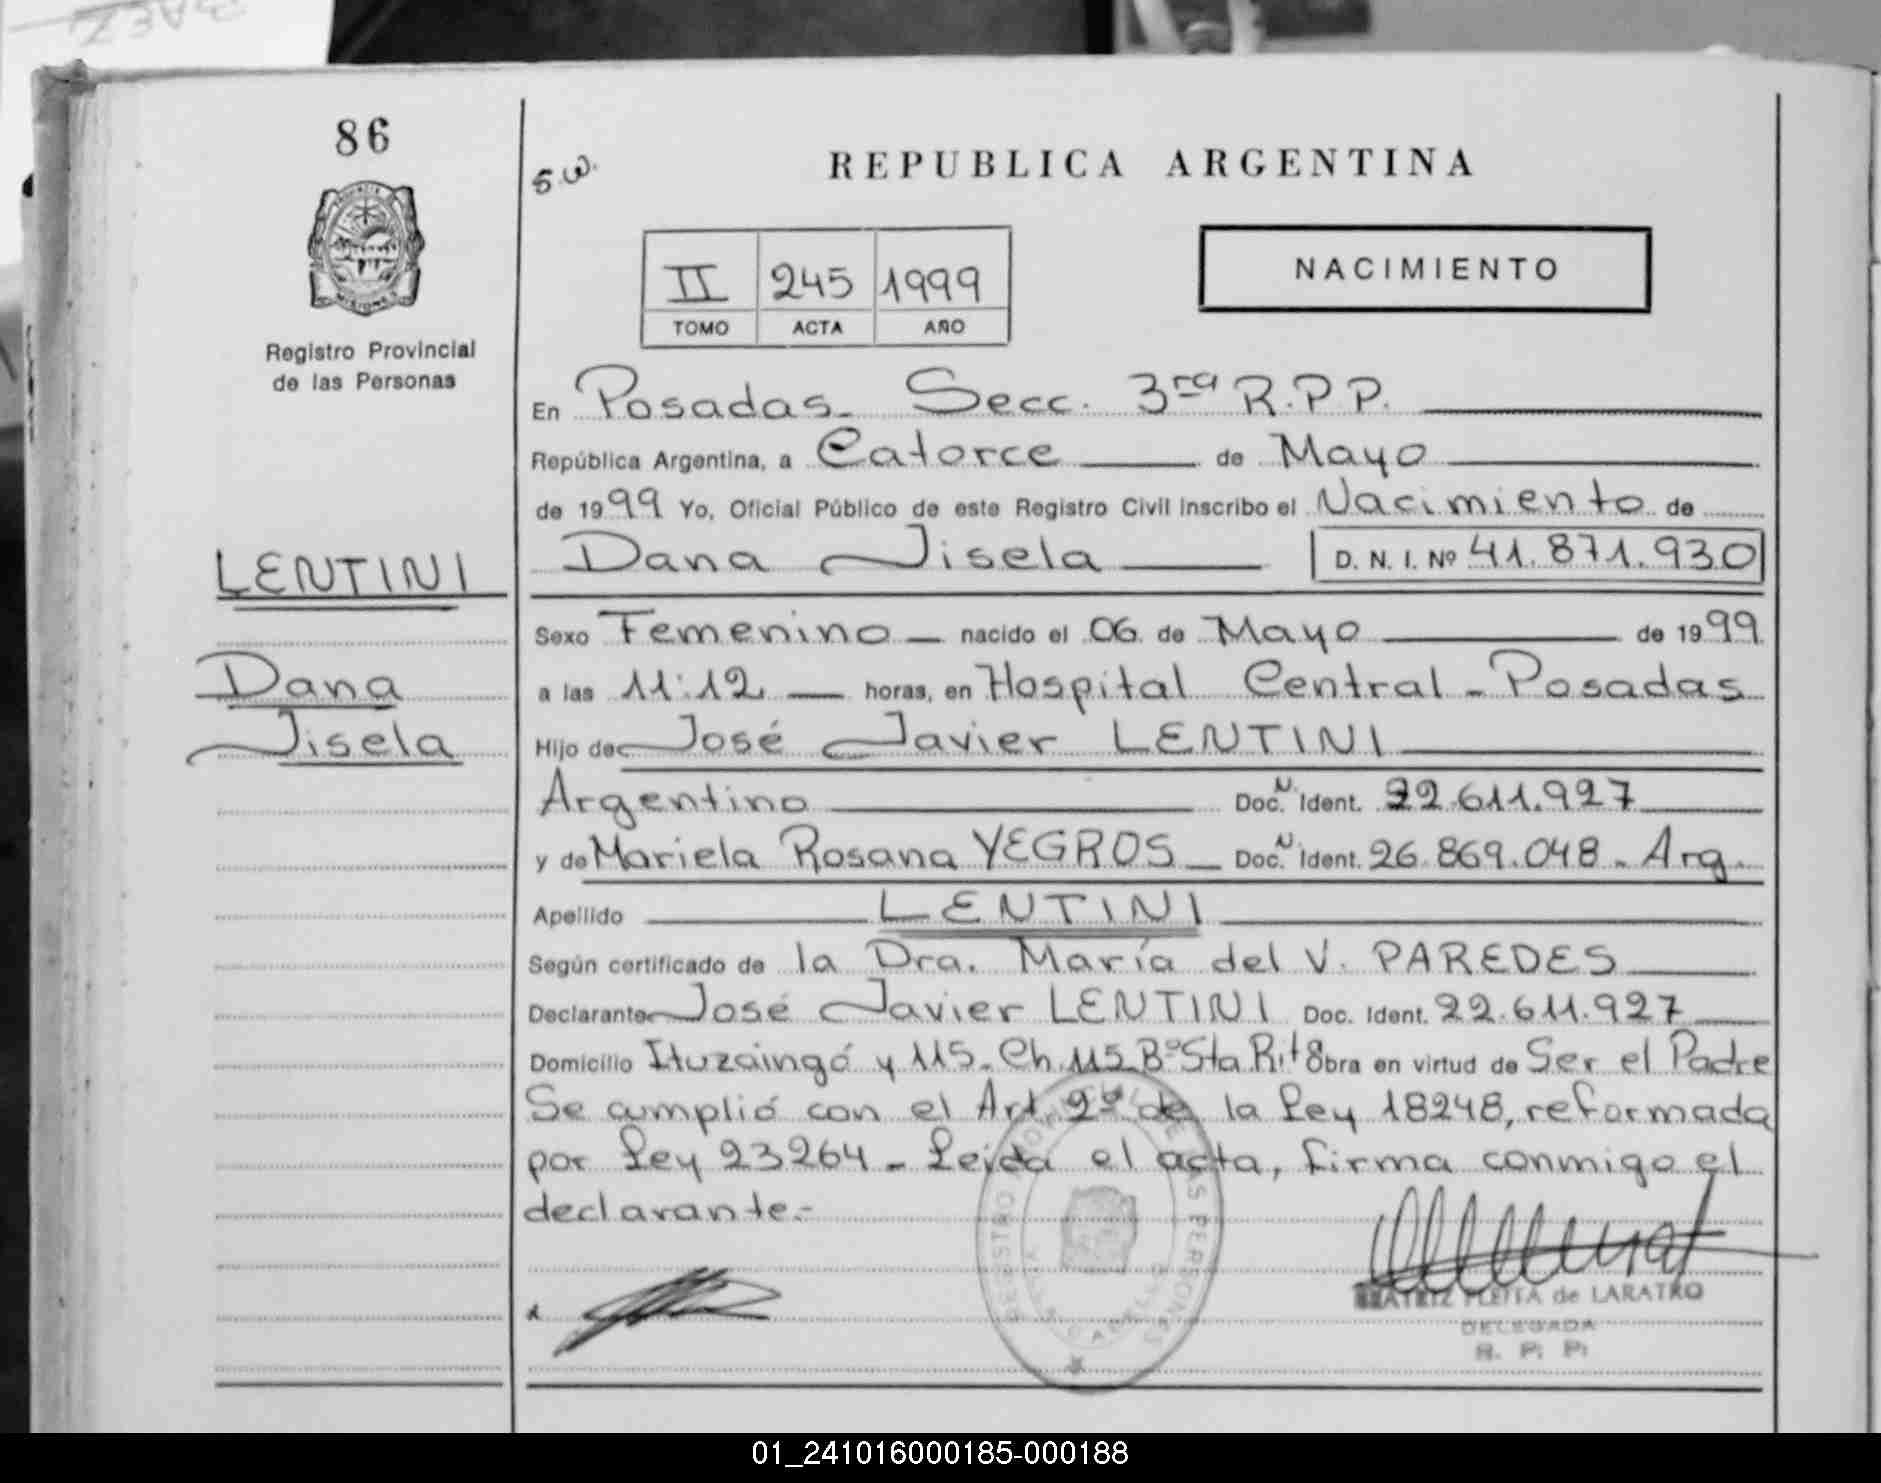 86
S.W.
REPUBLICA ARGENTINA
MISIONES
Registro Provincial
de las Personas
II 245 1999
TOMO ACTA AÑO
NACIMIENTO
En Posadas - Secc. 3ra R.P.P.
República Argentina, a Catorce de Mayo
de 1999 Yo, Oficial Público de este Registro Civil inscribo el Nacimiento de
LENTINI
Dana Jisela D. N. I. Nº 41.871.930
Sexo Femenino nacido el 06 de Mayo de 1999
Dana
a las 11:12 horas, en Hospital Central - Posadas
Jisela
Hijo de José Javier LENTINI
Argentino Doc. N Ident. 22.611.927
y de Mariela Rosana YEGROS Doc. N Ident. 26.869.048 - Arg.
Apellido LENTINI
Según certificado de la Dra. María del V. PAREDES
Declarante José Javier LENTINI Doc. Ident. 22.611.927
Domicilio Ituzaingó y 115 - Ch. 115 Bº Sta Rita Obra en virtud de Ser el Padre
Se cumplió con el Art. 2º de la Ley 18248, reformada
por Ley 23264 - Leida el acta, firma conmigo el
declarante.-
REGISTRO PROVINCIAL DE LAS PERSONAS
BEATRIZ FLEITA de LARATRO
DELEGADA
R. P. P.
01_241016000185-000188